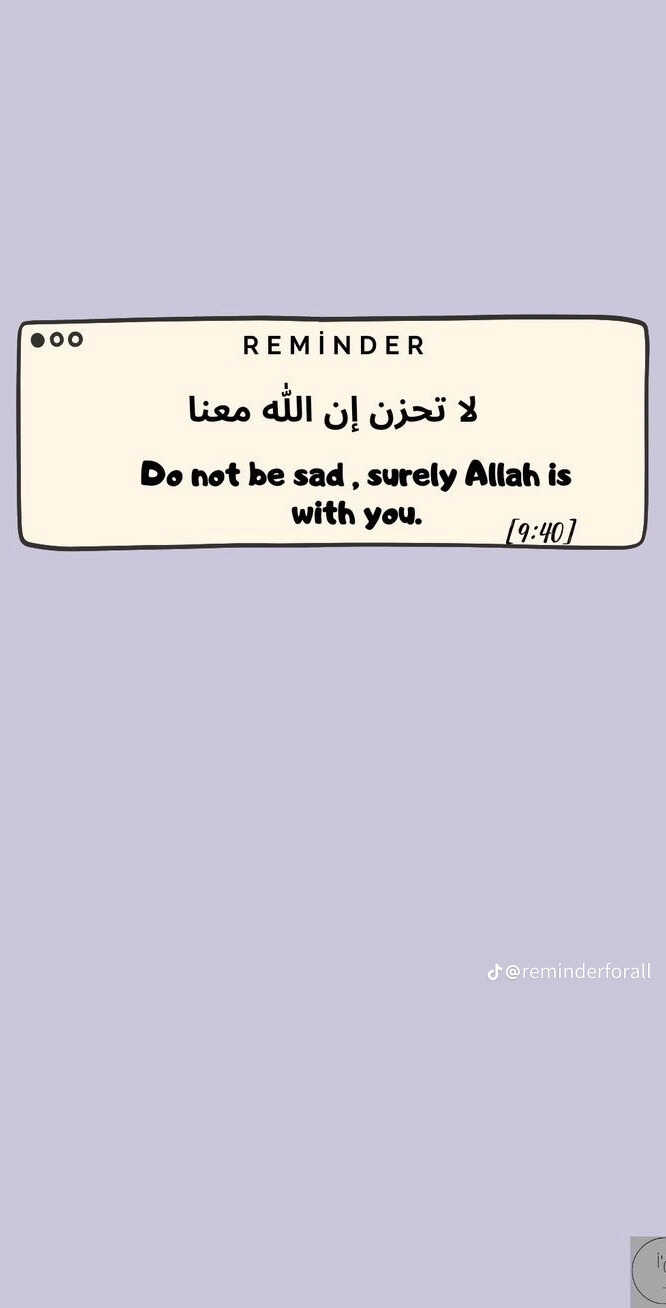 REMİNDER
لا تحزن إن الله معنا
Do not be sad , surely Allah is
with you.
[9:40]
@reminderforall